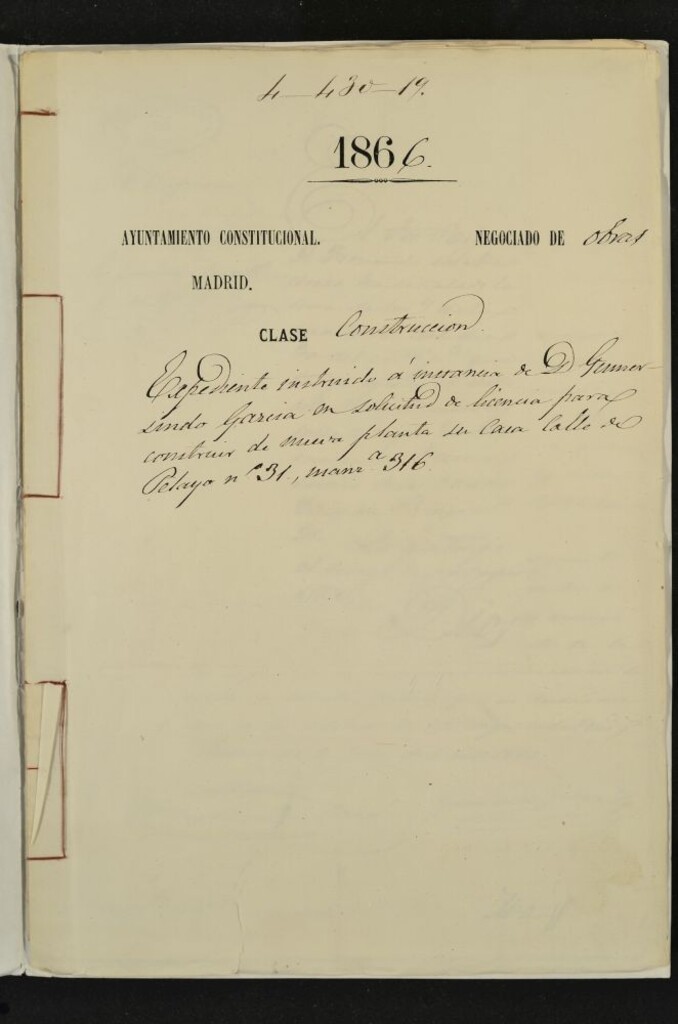 4-430-19.
1866.
AYUNTAMIENTO CONSTITUCIONAL. NEGOCIADO DE obras
MADRID.
CLASE Construccion.
Expediente instruido á instancia de D Gumer-
sindo Garcia en solicitud de licencia para
construir de nueva planta su Casa Calle de
Pelayo nº 31, manzª 316